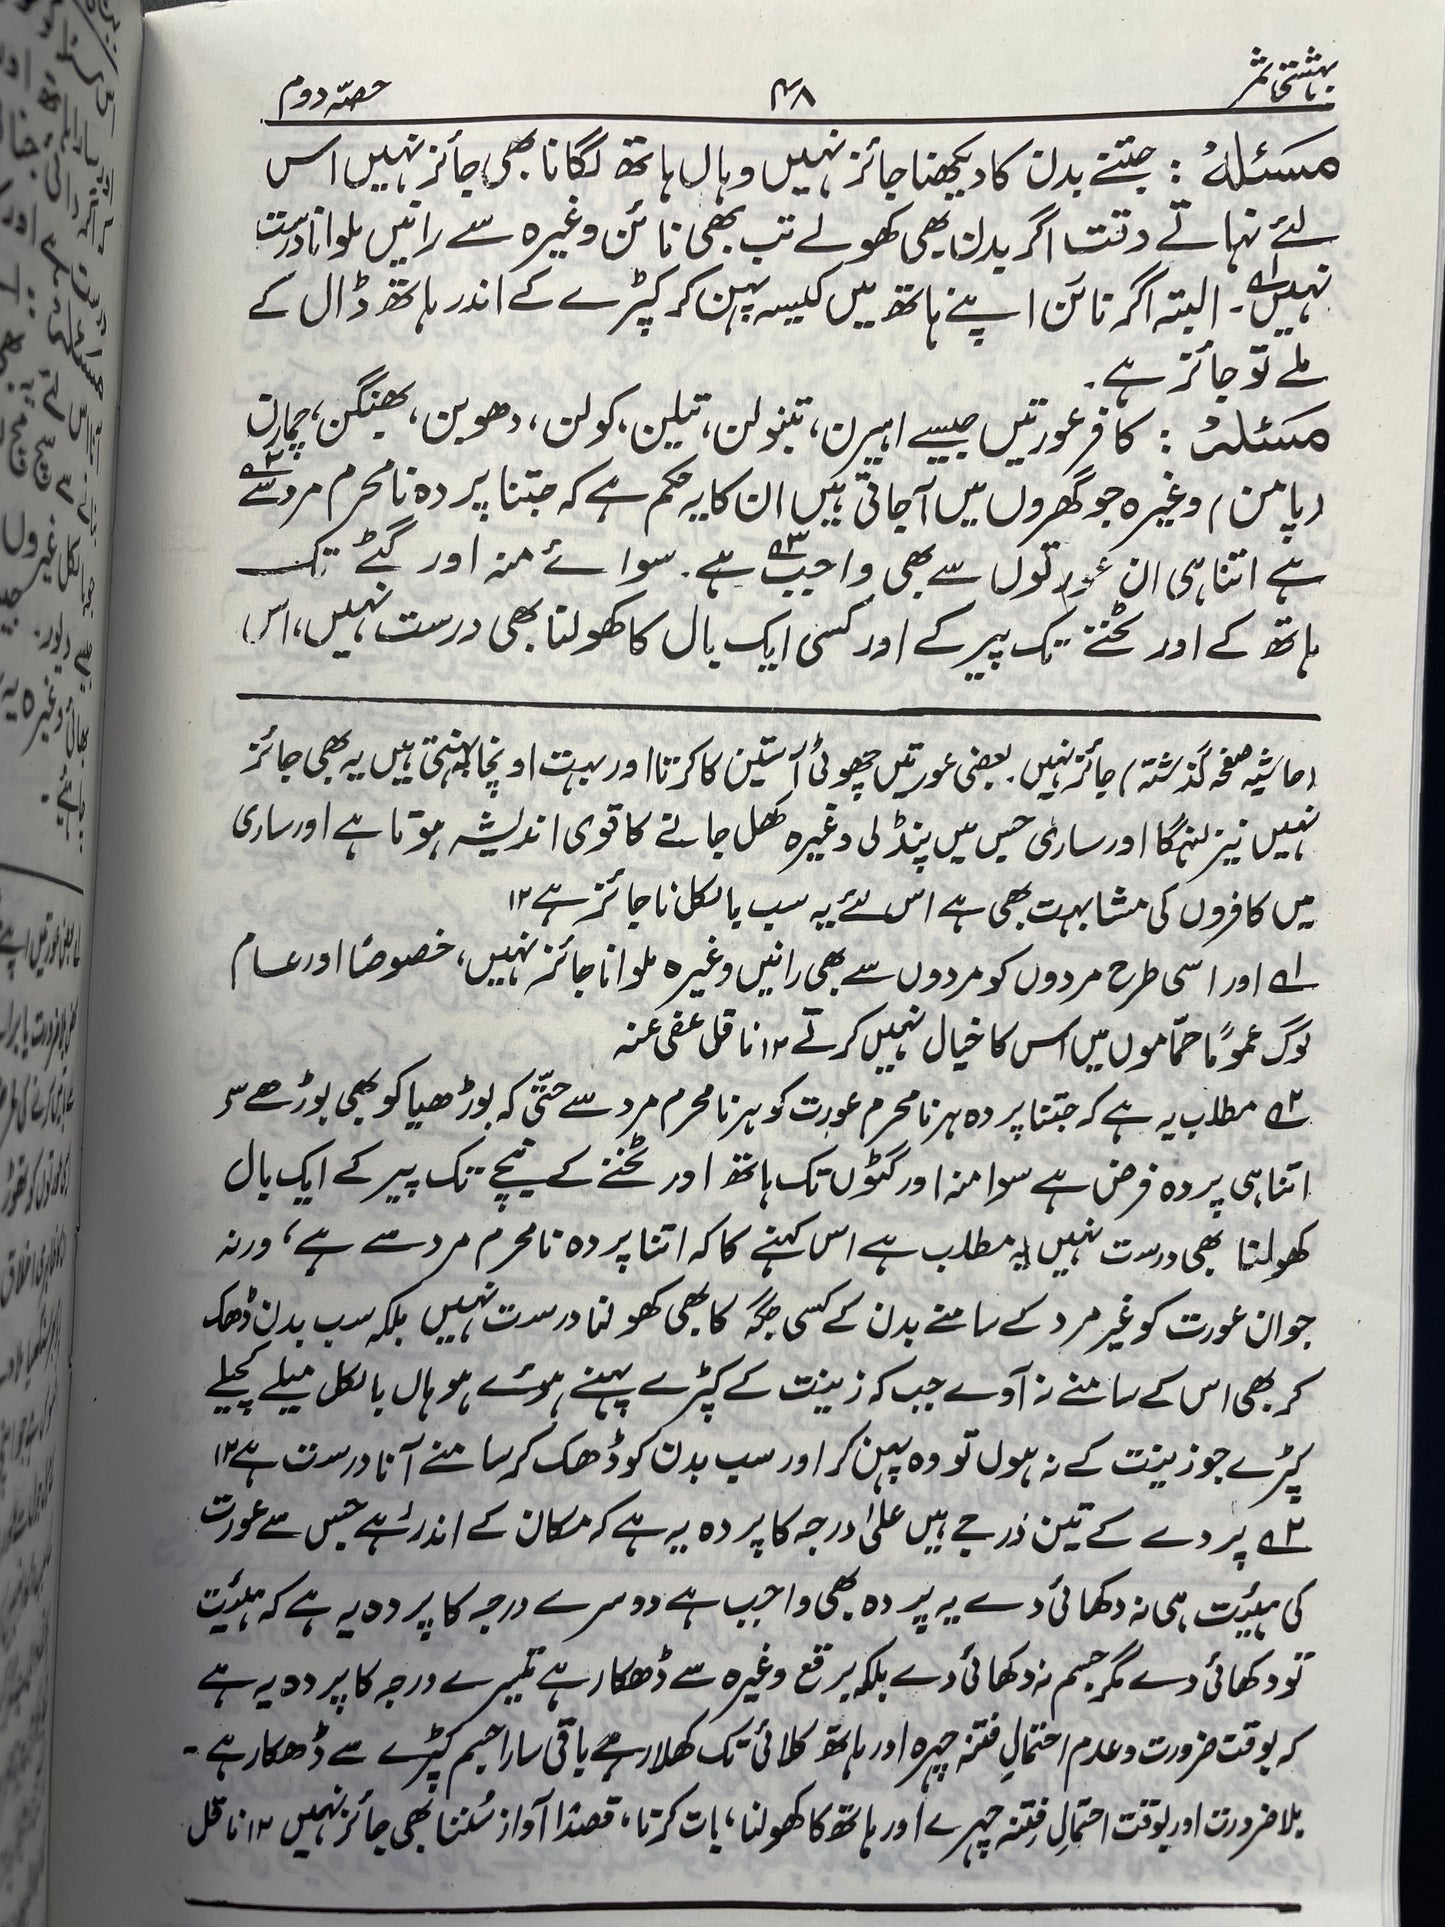 بہشتی ثمر ۴۸ حصّہ دوم
مسَئلہ : جتنے بدن کا دیکھنا جائز نہیں وہاں ہاتھ لگانا بھی جائز نہیں اس
لئے نہاتے وقت اگر بدن بھی کھولے تب بھی نائن وغیرہ سے رانیں ملوانا درست
نہیں۱؎۔ البتہ اگر نائن اپنے ہاتھ میں کیسہ پہن کر کپڑے کے اندر ہاتھ ڈال کے
ملے تو جائز ہے۔
مسَئلہ : کافر عورتیں جیسے اہیرن، تنبولن، تیلین، کولن، دھوبن، بھنگن، چمارن
(پامن) وغیرہ جو گھروں میں آجاتی ہیں ان کا یہ حکم ہے کہ جتنا پردہ نامحرم مرد سے۲؎
ہے اتنا ہی ان عورتوں سے بھی واجب۳؎ ہے۔ سوائے منہ اور گٹے تک
ہاتھ کے اور ٹخنے تک پیر کے اور کسی ایک بال کا کھولنا بھی درست نہیں، اس
(حاشیہ صفحہ گذشتہ) جائز نہیں۔ بعضی عورتیں چھوٹی آستین کا کرتا اور بہت اونچا پہنتی ہیں یہ بھی جائز
نہیں نیز لہنگا اور ساڑی جس میں پنڈلی وغیرہ کھل جانے کا قوی اندیشہ ہوتا ہے اور ساری
میں کافروں کی مشابہت بھی ہے اس لئے یہ سب بالکل ناجائز ہے۱۲
۱؎ اور اسی طرح مردوں کو مردوں سے بھی رانیں وغیرہ ملوانا جائز نہیں، خصوصًا اور عام
لوگ عمومًا حمّاموں میں اس کا خیال نہیں کرتے ۱۲ ناقل عفی عنہ
۲؎ مطلب یہ ہے کہ جتنا پردہ ہر نامحرم عورت کو ہر نامحرم مرد سے حتّی کہ بوڑھیا کو بھی بوڑھے سے
اتنا ہی پردہ فرض ہے سوا منہ اور گٹوں تک ہاتھ اور ٹخنے کے نیچے تک پیر کے ایک بال
کھولنا بھی درست نہیں یہ مطلب ہے اس کہنے کا کہ اتنا پردہ نامحرم مرد سے ہے، ورنہ
جوان عورت کو غیر مرد کے سامنے بدن کے کسی جگہ کا بھی کھولنا درست نہیں بلکہ سب بدن ڈھک
کر بھی اس کے سامنے نہ آوے جب کہ زینت کے کپڑے پہنے ہوئے ہو ہاں بالکل میلے کچیلے
کپڑے جو زینت کے نہ ہوں تو وہ پہن کر اور سب بدن کو ڈھک کر سامنے آنا درست ہے۱۲
۳؎ پردے کے تین درجے ہیں علیٰ درجہ کا پردہ یہ ہے کہ مکان کے اندر رہے جس سے عورت
کی ہیئت ہی نہ دکھائی دے یہ پردہ بھی واجب ہے دوسرے درجہ کا پردہ یہ ہے کہ ہیئت
تو دکھائی دے مگر جسم نہ دکھائی دے بلکہ برقع وغیرہ سے ڈھکا رہے تیسرے درجہ کا پردہ یہ ہے
کہ بوقت ضرورت و عدم احتمالِ فتنہ چہرہ اور ہاتھ کلائی تک کھلا رہے باقی سارا جسم کپڑے سے ڈھکا رہے۔
بلا ضرورت اور بوقت احتمالِ فتنہ چہرے اور ہاتھ کا کھولنا، بات کرنا، قصدًا آواز سُننا بھی جائز نہیں ۱۲ ناقل